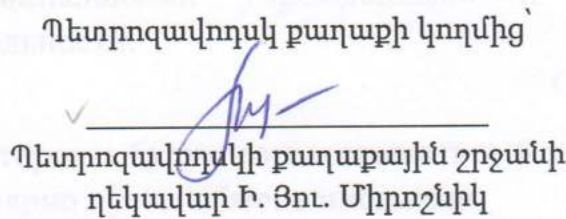 Պետրոզավոդսկ քաղաքի կողմից՝
Պետրոզավոդսկի քաղաքային շրջանի
ղեկավար Ի. Յու. Միրոշնիկ